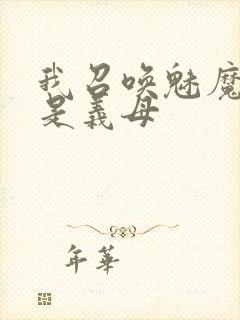 我召唤魅魔
是義母
年華